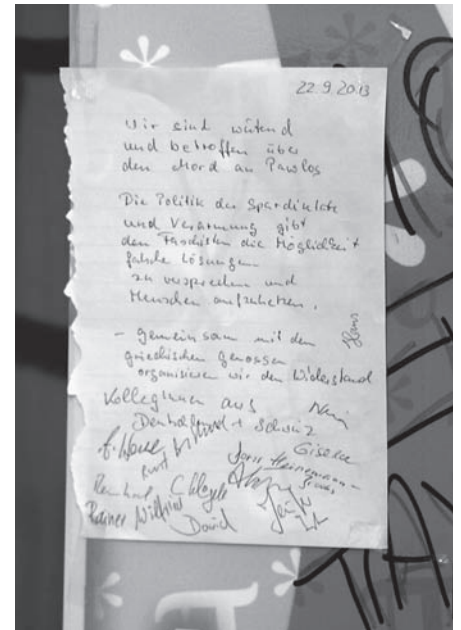 22.9.2013
Wir sind wütend
und betroffen über
den Mord an Pawlos
Die Politik der Spardiktate
und Verarmung gibt
den Faschisten die Möglichkeit
falsche Lösungen
zu versprechen und
Menschen aufzuhetzen.
Hans
- gemeinsam mit den
griechischen Genossen
organisieren wir den Widerstand
KollegInnen aus
Deutschland + Schweiz
Gisela
Rainer Wilfried
David